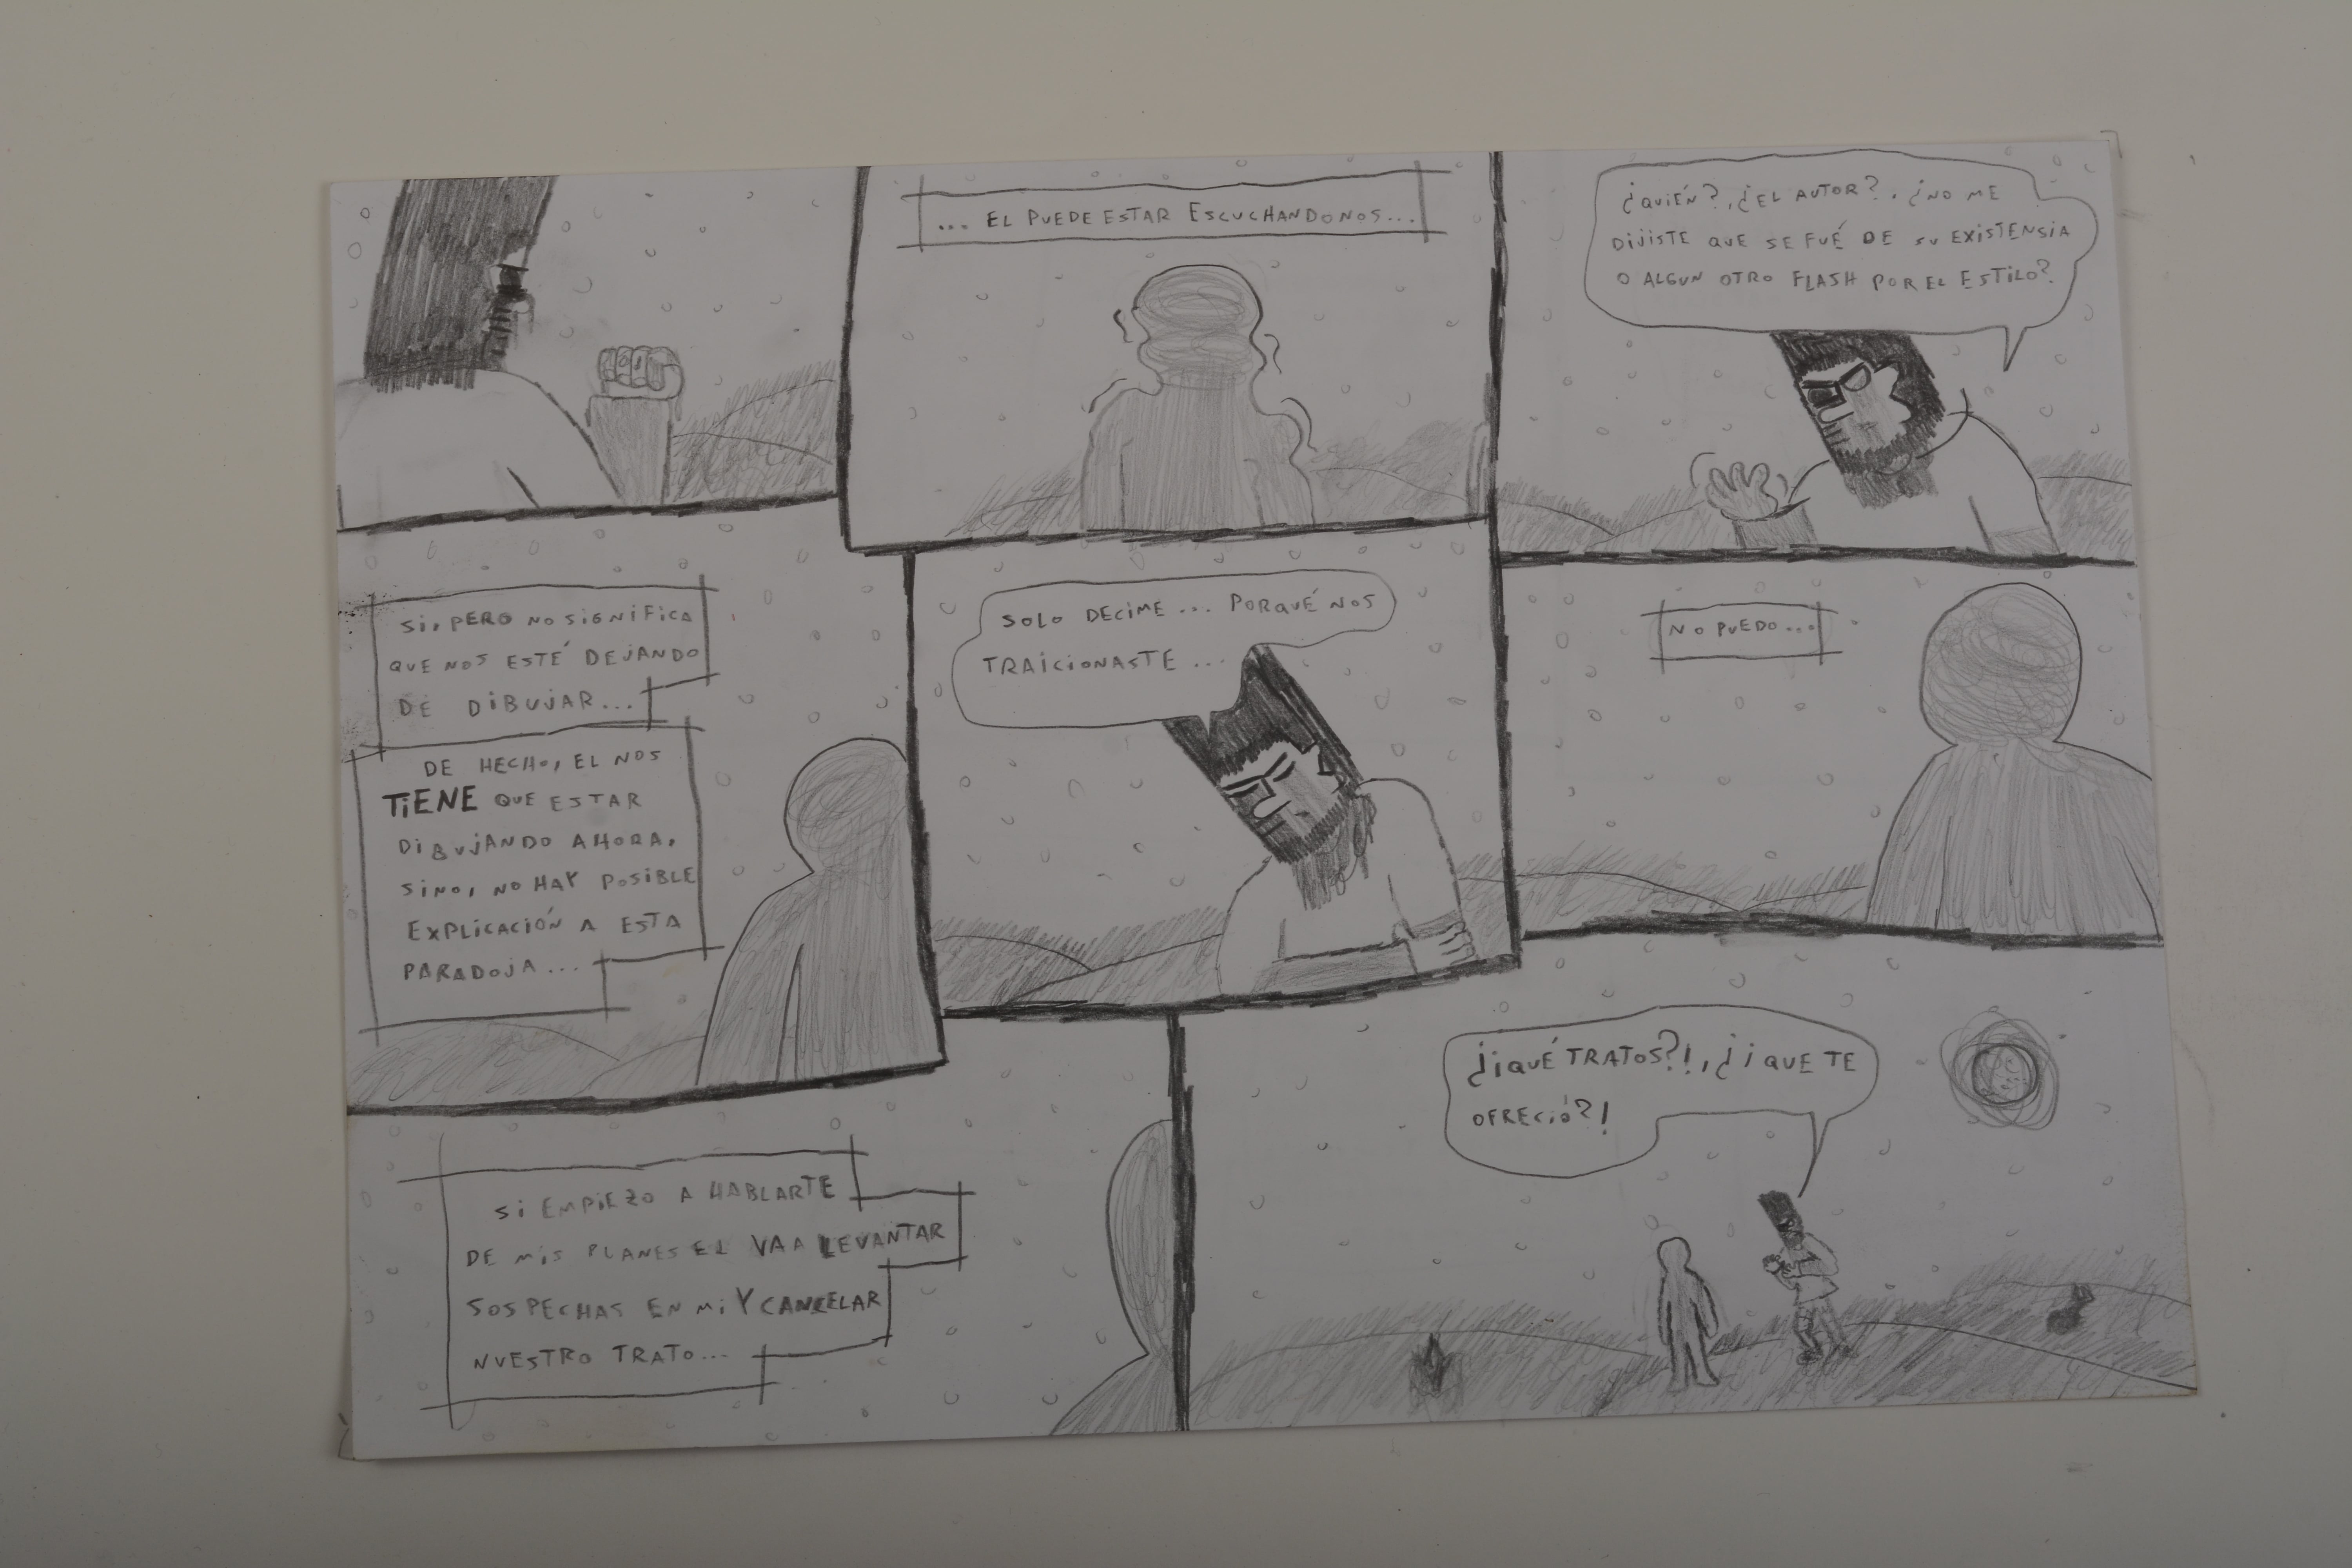 ... EL PUEDE ESTAR ESCUCHANDONOS...
¿QUIÉN?, ¿EL AUTOR?. ¿NO ME
DIJISTE QUE SE FUÉ DE SU EXISTENSIA
O ALGUN OTRO FLASH POR EL ESTILO?
SI, PERO NO SIGNIFICA
QUE NOS ESTÉ DEJANDO
DE DIBUJAR...
DE HECHO, EL NOS
TIENE QUE ESTAR
DIBUJANDO AHORA,
SINO, NO HAY POSIBLE
EXPLICACIÓN A ESTA
PARADOJA...
SOLO DECIME... PORQUÉ NOS
TRAICIONASTE...
NO PUEDO...
SI EMPIEZO A HABLARTE
DE MIS PLANES EL VA A LEVANTAR
SOSPECHAS EN MI Y CANCELAR
NUESTRO TRATO...
¿¡QUÉ TRATOS?!, ¿¡QUE TE
OFRECIÓ?!